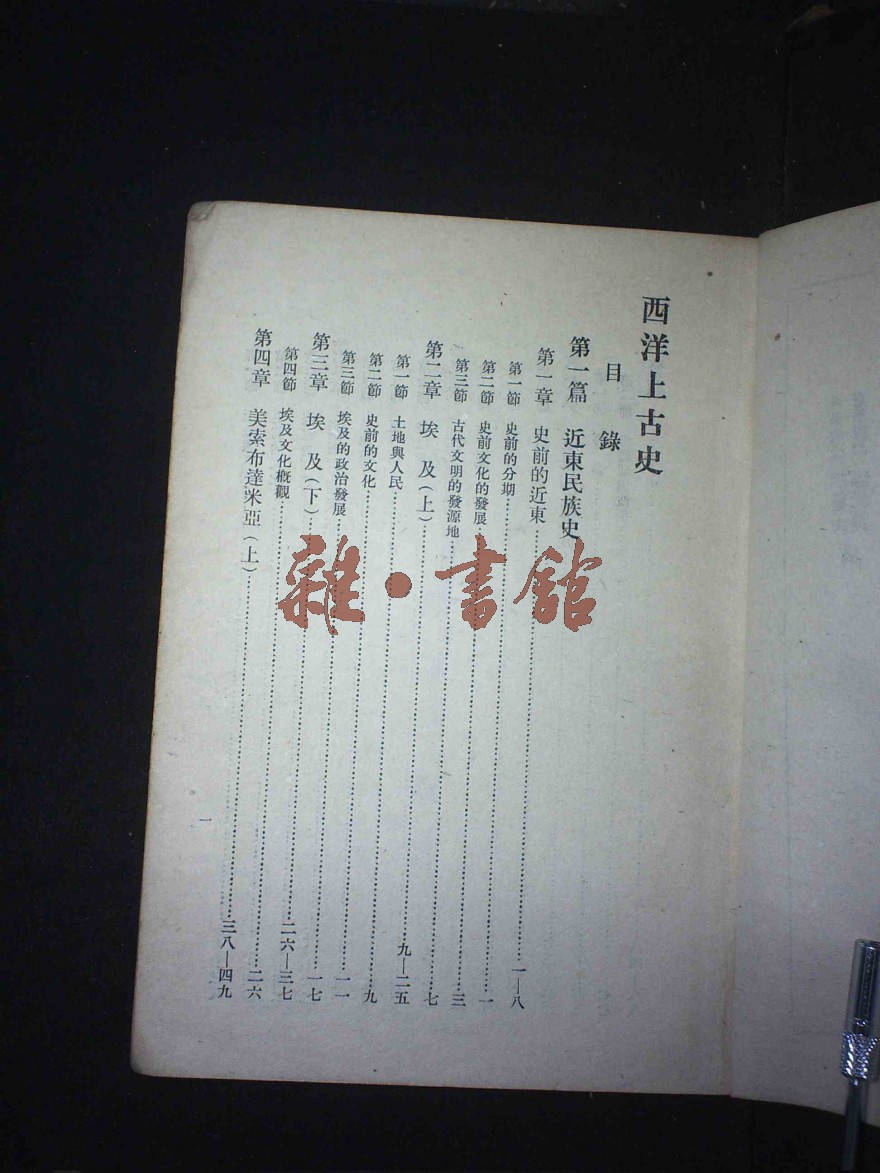 西洋上古史
目錄
第一篇 近東民族史
第一章 史前的近東……一—八
第一節 史前的分期……一
第二節 史前文化的發展……三
第三節 古代文明的發源地……七
第二章 埃及(上)……九—二五
第一節 土地與人民……九
第二節 史前的文化……一一
第三節 埃及的政治發展……一七
第三章 埃及(下)……二六—三七
第四節 埃及文化概觀……二六
第四章 美索布達米亞(上)……三八—四九
一
雜·書館